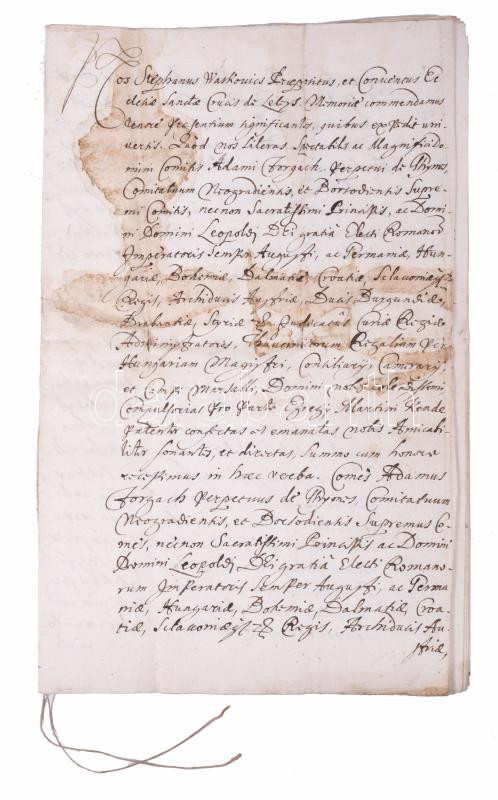 Nos Stephanus Waskovics Præpositus, et Conventus Ec
clesiæ Sanctæ Crucis de Lelesz. Memoriæ commendamus
tenore præsentium significantes, quibus expedit uni-
versis. Quod nos literas Spectabilis ac Magnifici Do-
mini Comitis Adami Forgach, perpetui de Ghymes,
Comitatuum Neogradiensis, et Borsodiensis Supre-
mi Comitis, necnon Sacratissimi Principis, ac Domi-
ni Domini Leopoldi Dei gratia Electi Romanor
Imperatoris Semper Augusti, ac Germaniæ, Hun-
gariæ, Bohemiæ, Dalmatiæ, Croatiæ, Sclavoniæq
Regis, Archiducis Austriæ, Ducis Burgundiæ,
Brabantiæ, Styriæ Judicatus Curiæ Regiæ
Administratoris, Thavernicorum Regalium per
Hungariam Magistri, Consiliarÿ, Camerarÿ,
et Campi Marsalli, Domini nobis colendissimi
Compulsorias pro parte Egregÿ Martini
patenter confectas et emanatas nobis Amicabi-
liter sonantes, et directas, summo cum honore
recepissimus in hæc verba. Comes Adamus
Forgach perpetuus de Ghymes, Comitatuum
Neogradiensis, et Borsodiensis Supremus Co-
mes, necnon Sacratissimi Principis ac Domini
Domini Leopoldi Dei gratiâ Electi Romano-
rum Imperatoris Semper Augusti, ac Germa
niæ, Hungariæ, Bohemiæ, Dalmatiæ, Croa-
tiæ, Sclavoniæq Regis, Archiducis Au-
striæ,
darabanth